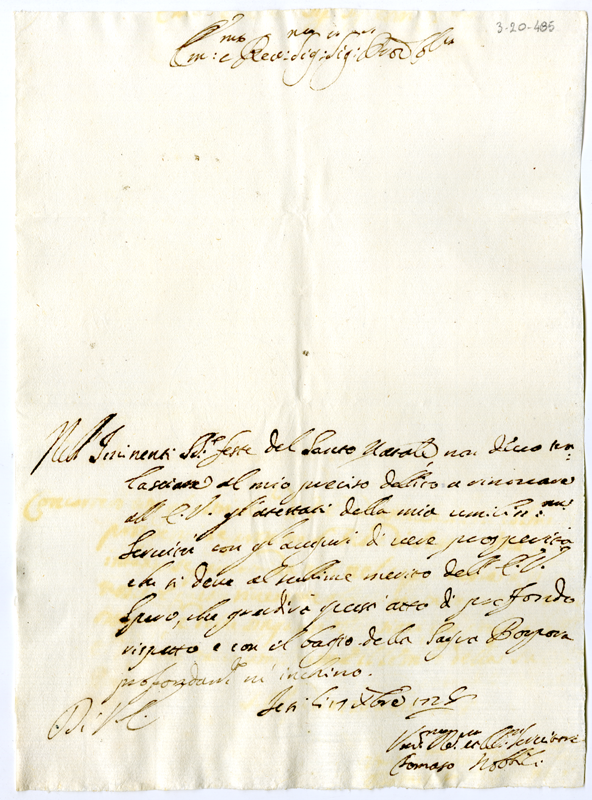 3-20-485
Em:mo e Rev:mo Sig: Sig:
Nell' Iminenti S.S.te feste del Santo Natale non devo tra=
lasciare al mio preciso debito a rinovare
all' E.V. gl' attestati della mia umiliss:ma
Servitù con gl' auguri di vere prosperità
che si deve al sublime merito dell' E.V.
Spero, che gradirà quest' atto di profondo
rispetto e con il bacio della Sagra Porpora
profondam.te m' inchino.
Jesi li 17 Xbre 172
Di V.E.
Um:mo
Tomaso Nobili